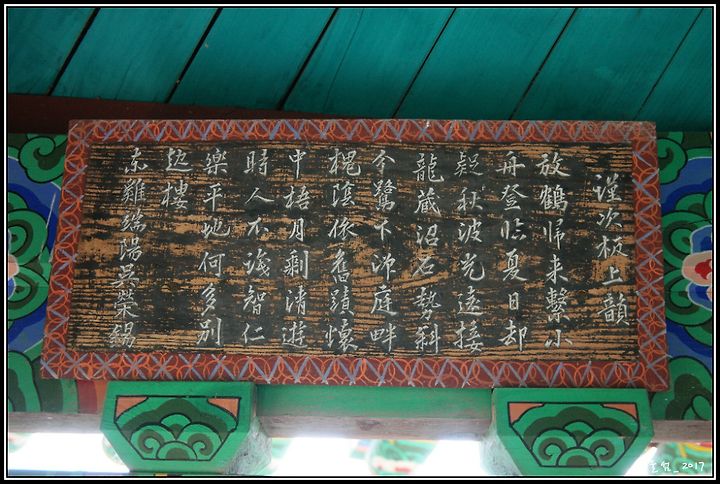 謹次板上韻
放鶴帰来繫小
舟登臨夏日却
疑秋波光遠接
龍蔵沼石勢斜
分鷺下洲庭畔
槐陰依舊蹟懷
中梧月剩清遊
時人不識智仁
樂平地何多別
起樓
赤雞端陽吳榮錫
2017